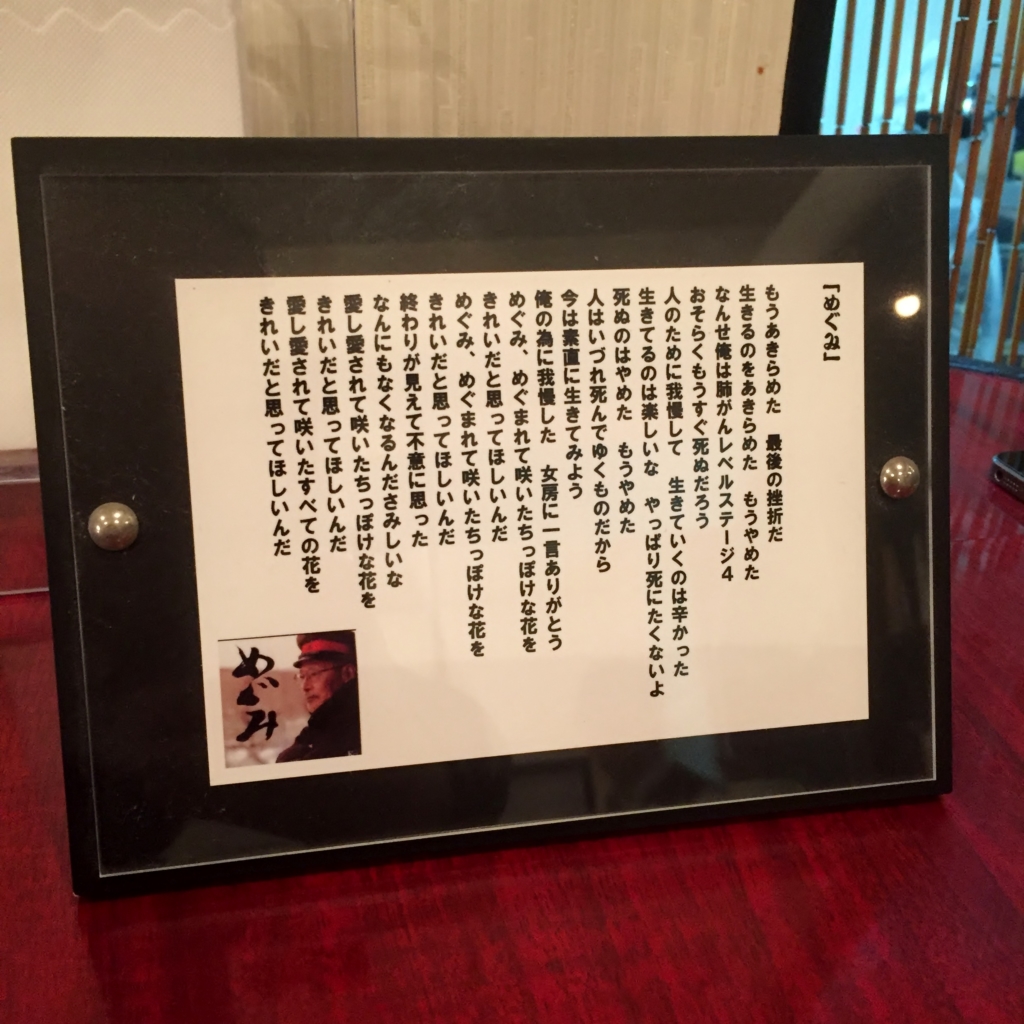 『めぐみ』
もうあきらめた　最後の挫折だ
生きるのをあきらめた　もうやめた
なんせ俺は肺がんレベルステージ４
おそらくもうすぐ死ぬだろう
人のために我慢して　生きていくのは辛かった
生きてるのは楽しいな　やっぱり死にたくないよ
死ぬのはやめた　もうやめた
人はいづれ死んでゆくものだから
今は素直に生きてみよう
俺の為に我慢した　女房に一言ありがとう
めぐみ、めぐまれて咲いたちっぽけな花を
きれいだと思ってほしいんだ
めぐみ、めぐまれて咲いたちっぽけな花を
きれいだと思ってほしいんだ
終わりが見えて不意に思った
なんにもなくなるんださみしいな
愛し愛されて咲いたちっぽけな花を
きれいだと思ってほしいんだ
愛し愛されて咲いたすべての花を
きれいだと思ってほしいんだ
めぐみ